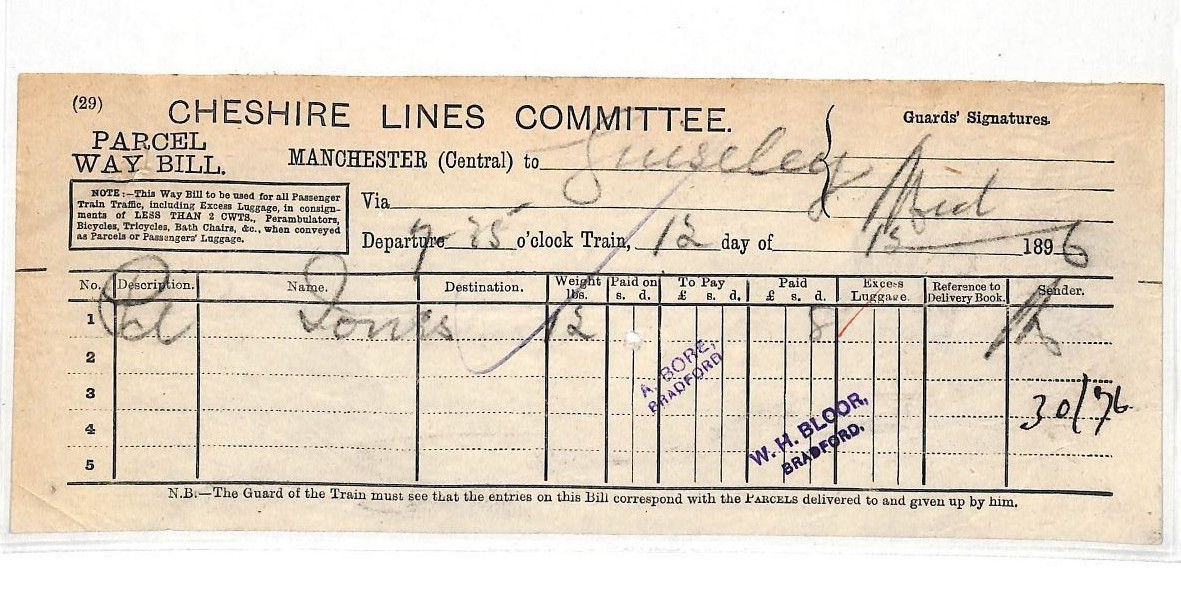 (29) CHESHIRE LINES COMMITTEE.
Guards' Signatures.
PARCEL
WAY BILL.
MANCHESTER (Central) to Guiseley
Mid
NOTE:—This Way Bill to be used for all Passenger
Train Traffic, including Excess Luggage, in consign-
ments of LESS THAN 2 CWTS., Perambulators,
Bicycles, Tricycles, Bath Chairs, &c., when conveyed
as Parcels or Passengers' Luggage.
Via
Departure 7-25 o'clock Train, 12 day of 1896
No. Description. Name. Destination. Weight lbs. Paid on s. d. To Pay £ s. d. Paid £ s. d. Excess Luggage. Reference to Delivery Book. Sender.
1 Pcl Jones 12 8
2
3
4
5
A. BORE,
BRADFORD
30/76
W. H. BLOOR,
BRADFORD.
N.B.—The Guard of the Train must see that the entries on this Bill correspond with the PARCELS delivered to and given up by him.